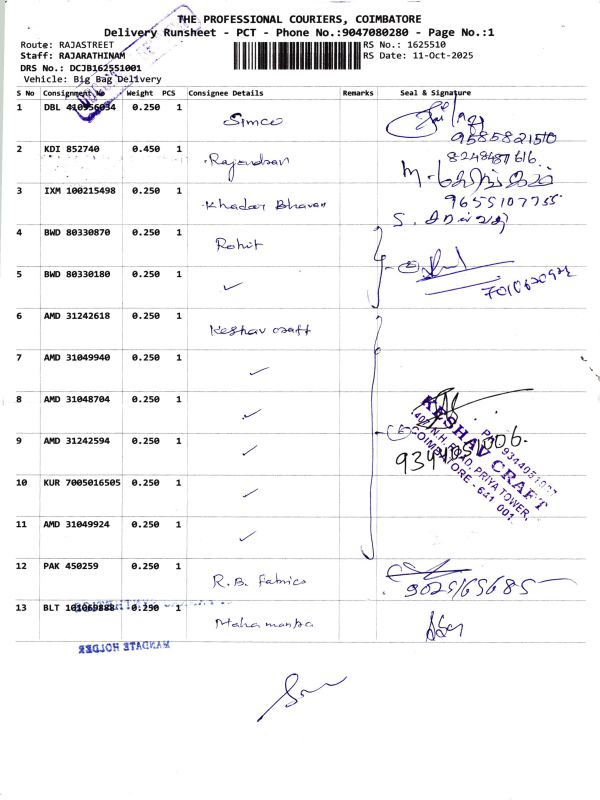 THE PROFESSIONAL COURIERS, COIMBATORE
Delivery Runsheet - PCT - Phone No.:9047080280 - Page No.:1
Route: RAJASTREET RS No.: 1625510
Staff: RAJARATHINAM RS Date: 11-Oct-2025
DRS No.: DCJB162551001
Vehicle: Big Bag Delivery
S No Consignment No Weight PCS Consignee Details Remarks Seal & Signature
1 DBL 0.250 1 Simco
9585821510
2 KDI 852740 0.450 1 Rajendran
8248487616
3 IXM 100215498 0.250 1 Khadar Bhavan
9655107755
4 BWD 80330870 0.250 1 Rohit
5 BWD 80330180 0.250 1 ✓
6 AMD 31242618 0.250 1 Keshav craft
7 AMD 31049940 0.250 1 ✓
8 AMD 31048704 0.250 1 ✓
9 AMD 31242594 0.250 1 ✓
KESHAV CRAFT
PRIYA TOWER,
COIMBATORE - 641 001.
10 KUR 7005016505 0.250 1 ✓
11 AMD 31049924 0.250 1 ✓
12 PAK 450259 0.250 1 R.B. Fabrics
9025165685
13 BLT 0.250 1
MANDATE HOLDER